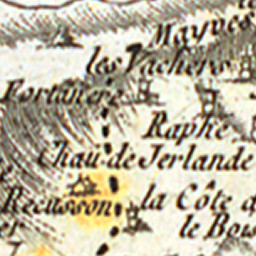 Mayves
les Vachers
Fortunere
Raphe
Chau de Jerlande
Recusson
la Côte d
le Bois